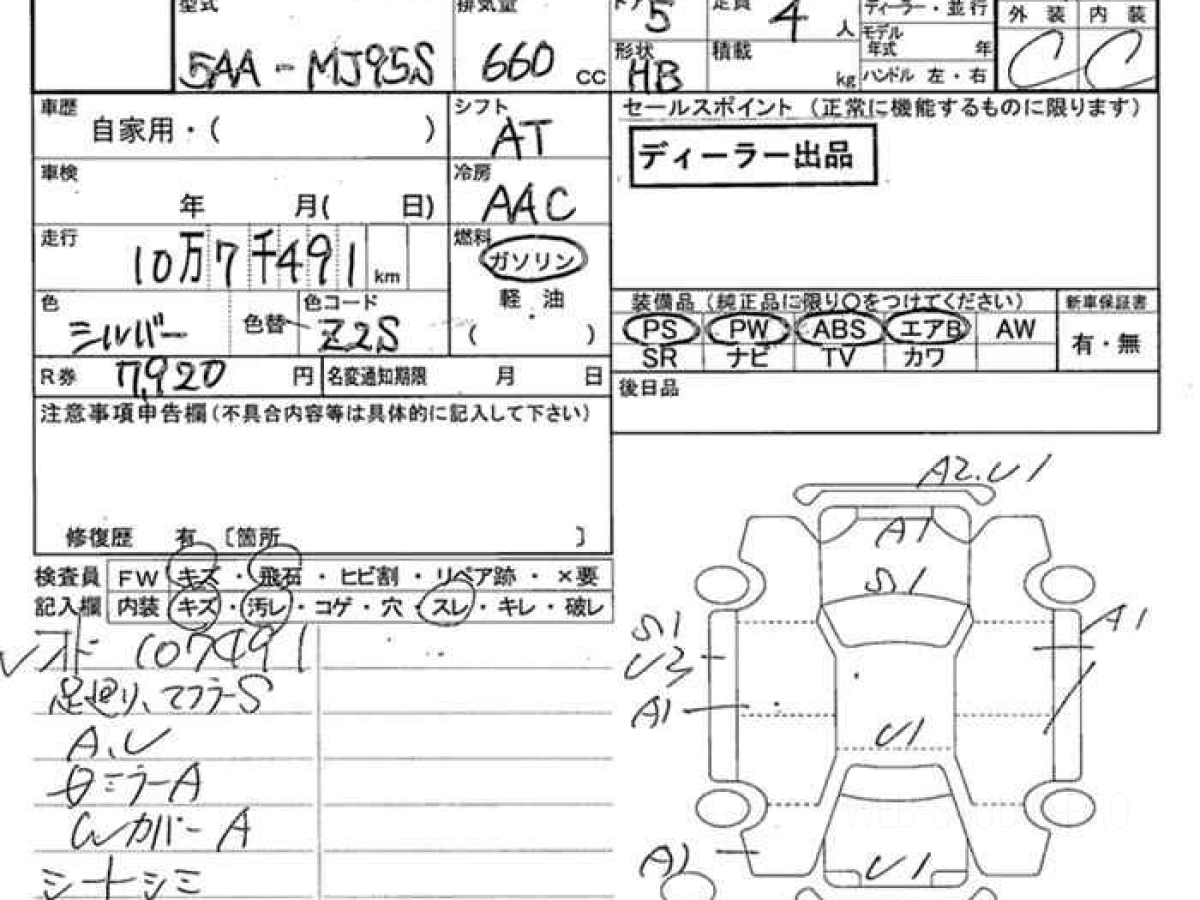 型式 5AA-MJ95S
排気量 660 cc
ドア 5
定員 4 人
ディーラー・並行
モデル年式 年
外装 内装
C C
形状 HB
積載 kg
ハンドル 左・右
車歴 自家用・( )
シフト AT
セールスポイント (正常に機能するものに限ります)
ディーラー出品
車検 年 月( 日)
冷房 AAC
走行 10万7千491 km
燃料 ガソリン
軽 油
( )
色 シルバー
色替
色コード Z2S
装備品 (純正品に限り○をつけてください)
新車保証書
PS PW ABS エアB AW
有・無
SR ナビ TV カワ
R券 7,920 円
名変通知期限 月 日
後日品
注意事項申告欄(不具合内容等は具体的に記入して下さい)
修復歴 有 〔箇所 〕
検査員 FW キズ・飛石・ヒビ割・リペア跡・×要
記入欄 内装 キズ・汚レ・コゲ・穴・スレ・キレ・破レ
オド 107491
足廻り、マフラーS
A、U
ミラーA
Wカバー A
シートシミ
A2.U1
A1
S1
S1
U3
A1
A1
U1
A1
U1